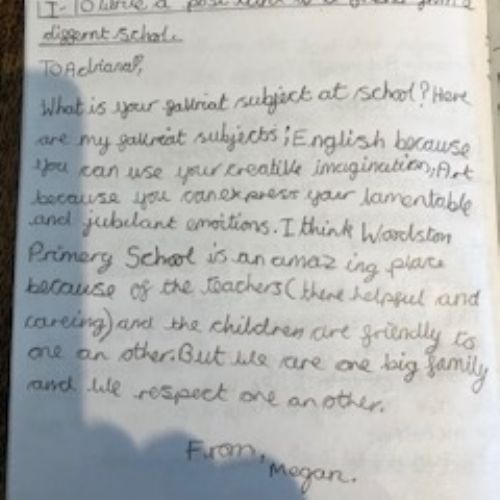 I-To write a postcard to a friend from a
differnt school.
To Adriana,
What is your favriat subject at school? Here
are my favreat subjects; English because
you can use your creative imagination, Art
because you can express your lamentable
and jubilant emoitions. I think Wardston
Primary School is an amaz ing place
because of the teachers (there helpful and
careing) and the children are friendly to
one an other. But we are one big family
and we respect one an other.
From,
Megan.